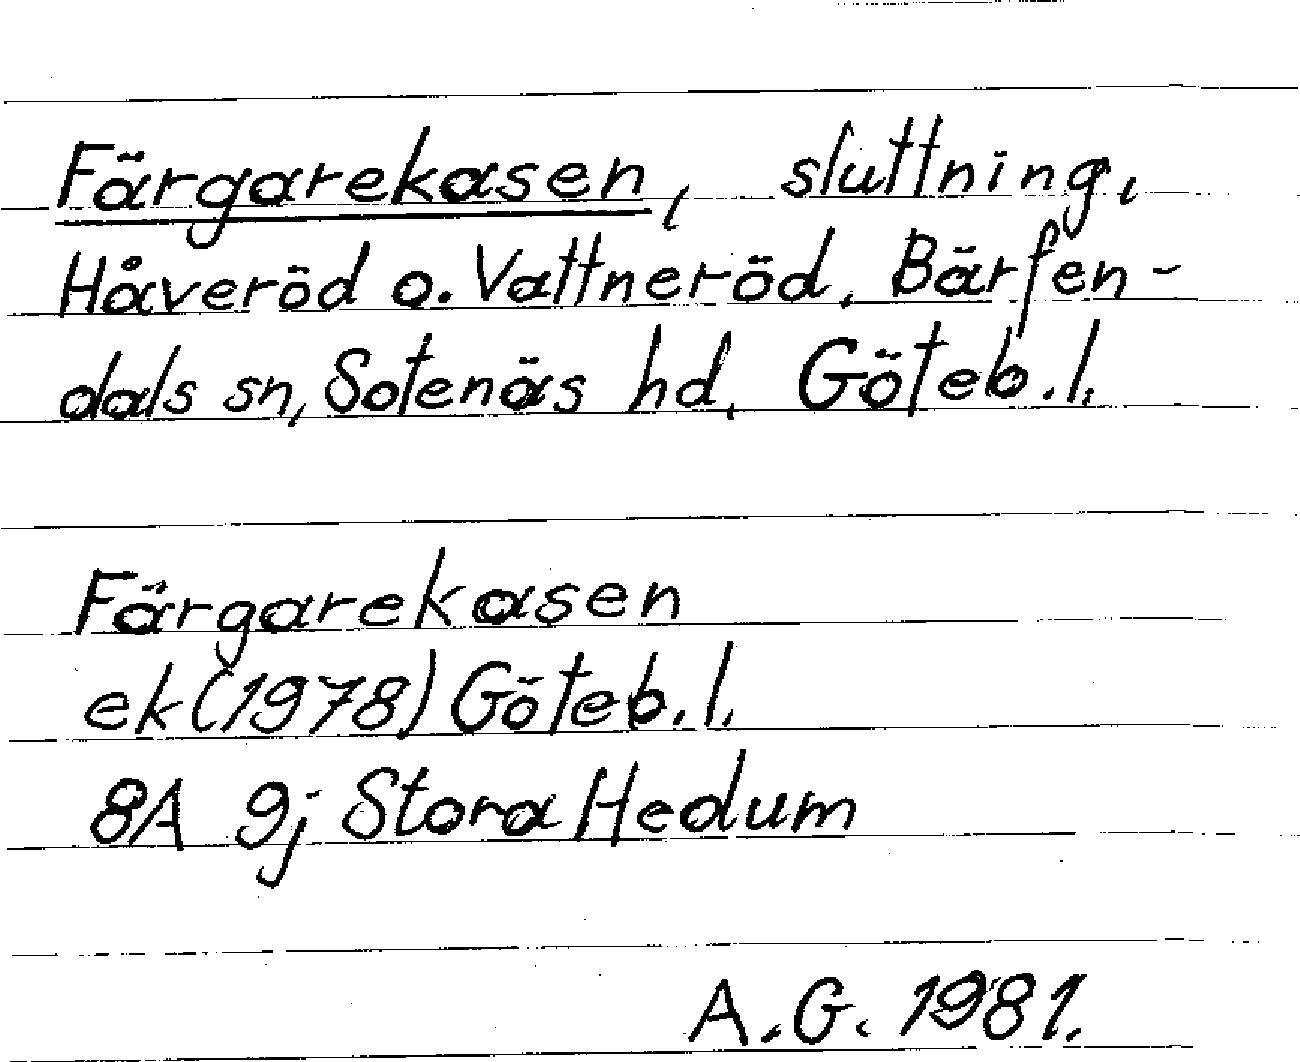 Färgarekasen, sluttning,
Håveröd o. Vattneröd, Bärfen-
dals sn, Sotenäs hd, Göteb. l.
Färgarekasen
ek (1978) Göteb. l.
8A 9j Stora Hedum
A. G. 1981.